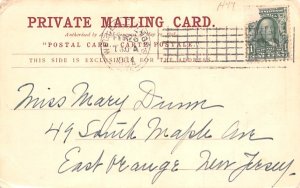 H44
PRIVATE MAILING CARD.
Authorized by
"POSTAL CARD — CARTE POSTALE."
THIS SIDE IS EXCLUSIVELY FOR THE ADDRESS.
Miss Mary Dunn
49 South Maple Ave
East Orange New Jersey.